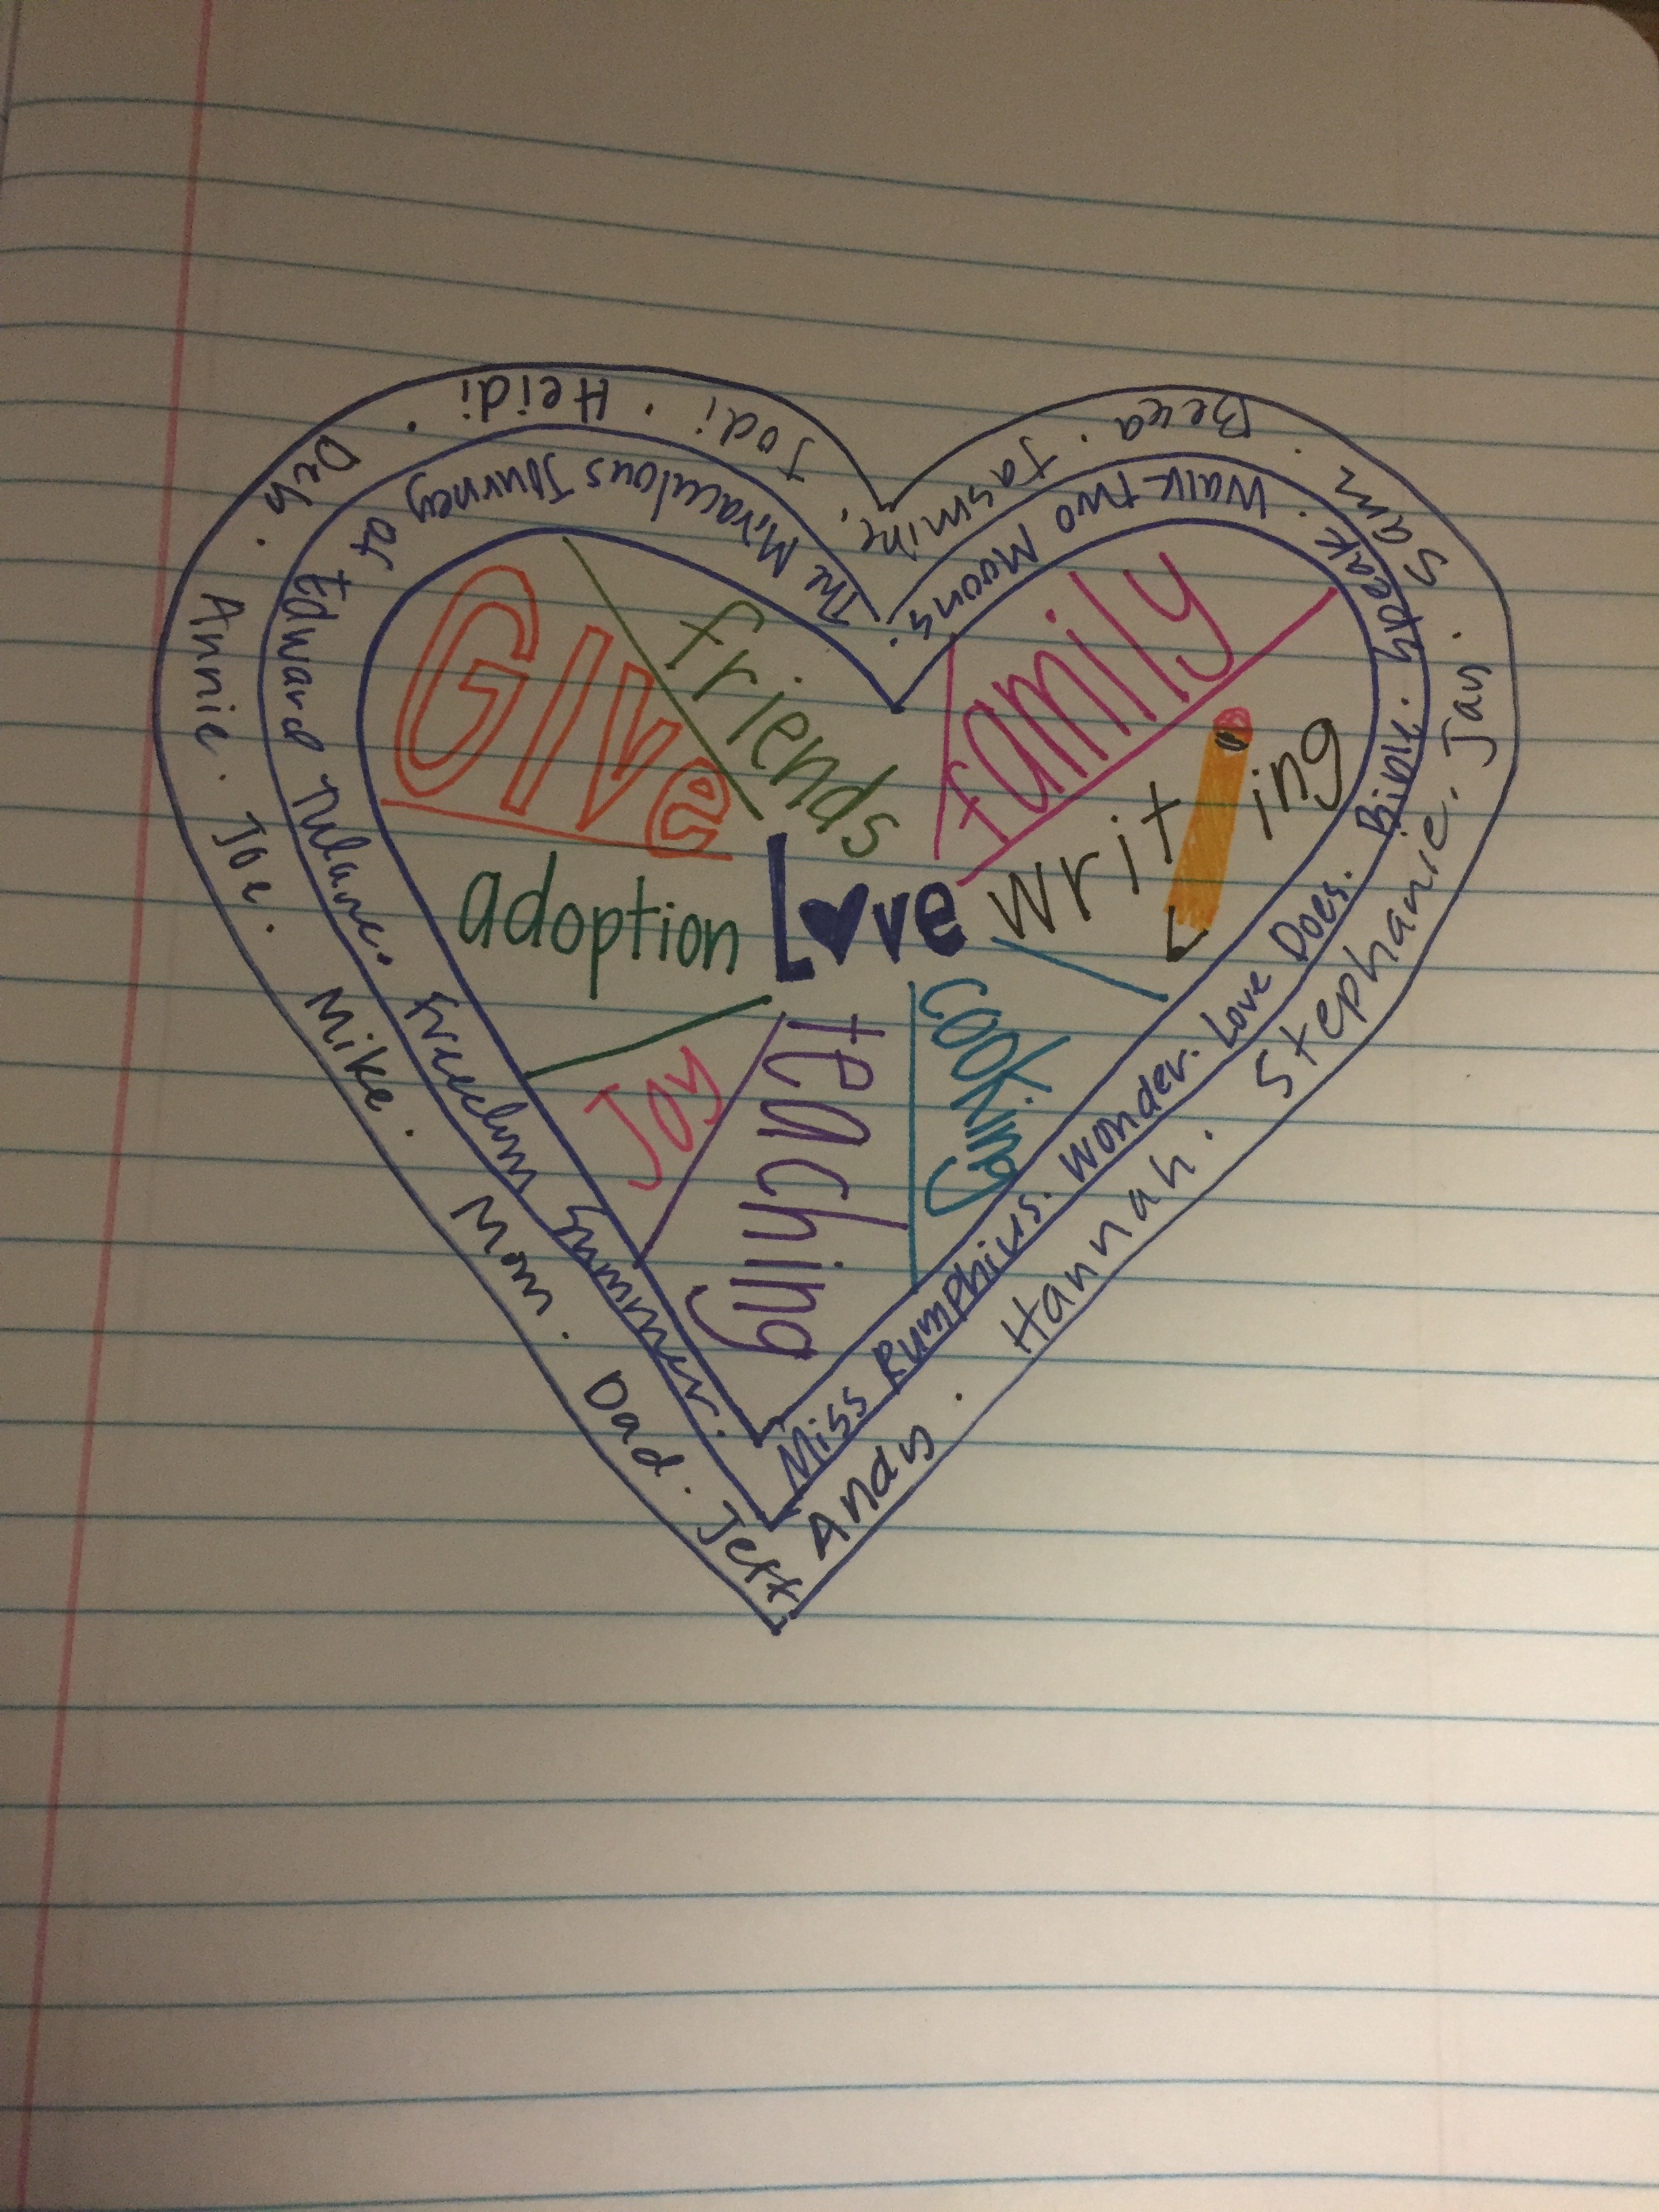 Jodi . Heidi . Deb . Annie . Joe . Mike . Mom . Dad . Jeff
Andy . Hannah . Stephanie . Jay . Sam . Becca . Jasmine.
The Miraculous Journey of Edward Tulane. Freedom Summer.
Miss Rumphius. Wonder. Love Does. Bible. Speak. Walk two Moons.
Give
friends
family
writing
adoption
Love
Joy
teaching
cooking